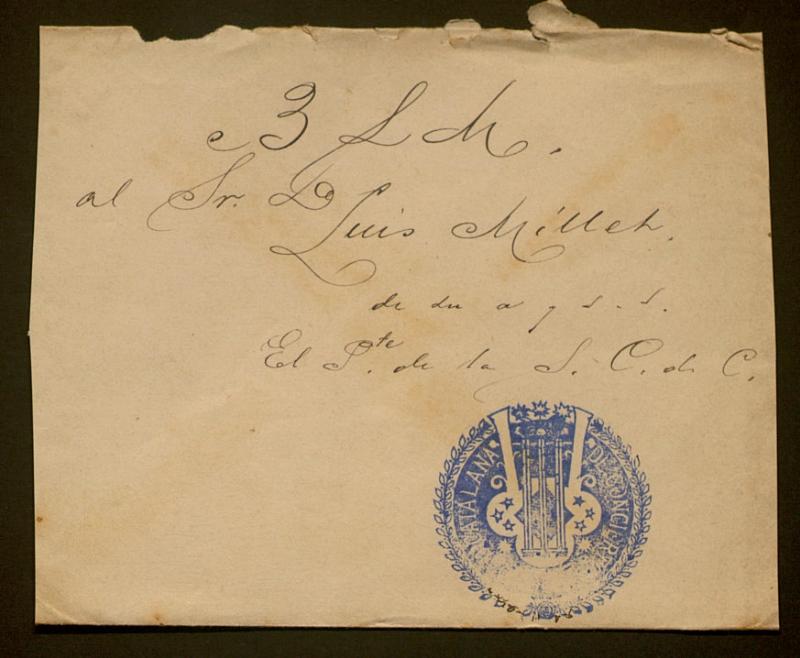 3 L M.
al Sr. D.
Luis Millet.
de su a y s. s.
El P.te de la S. C. de C.
CATALANA DE CONCIERTOS